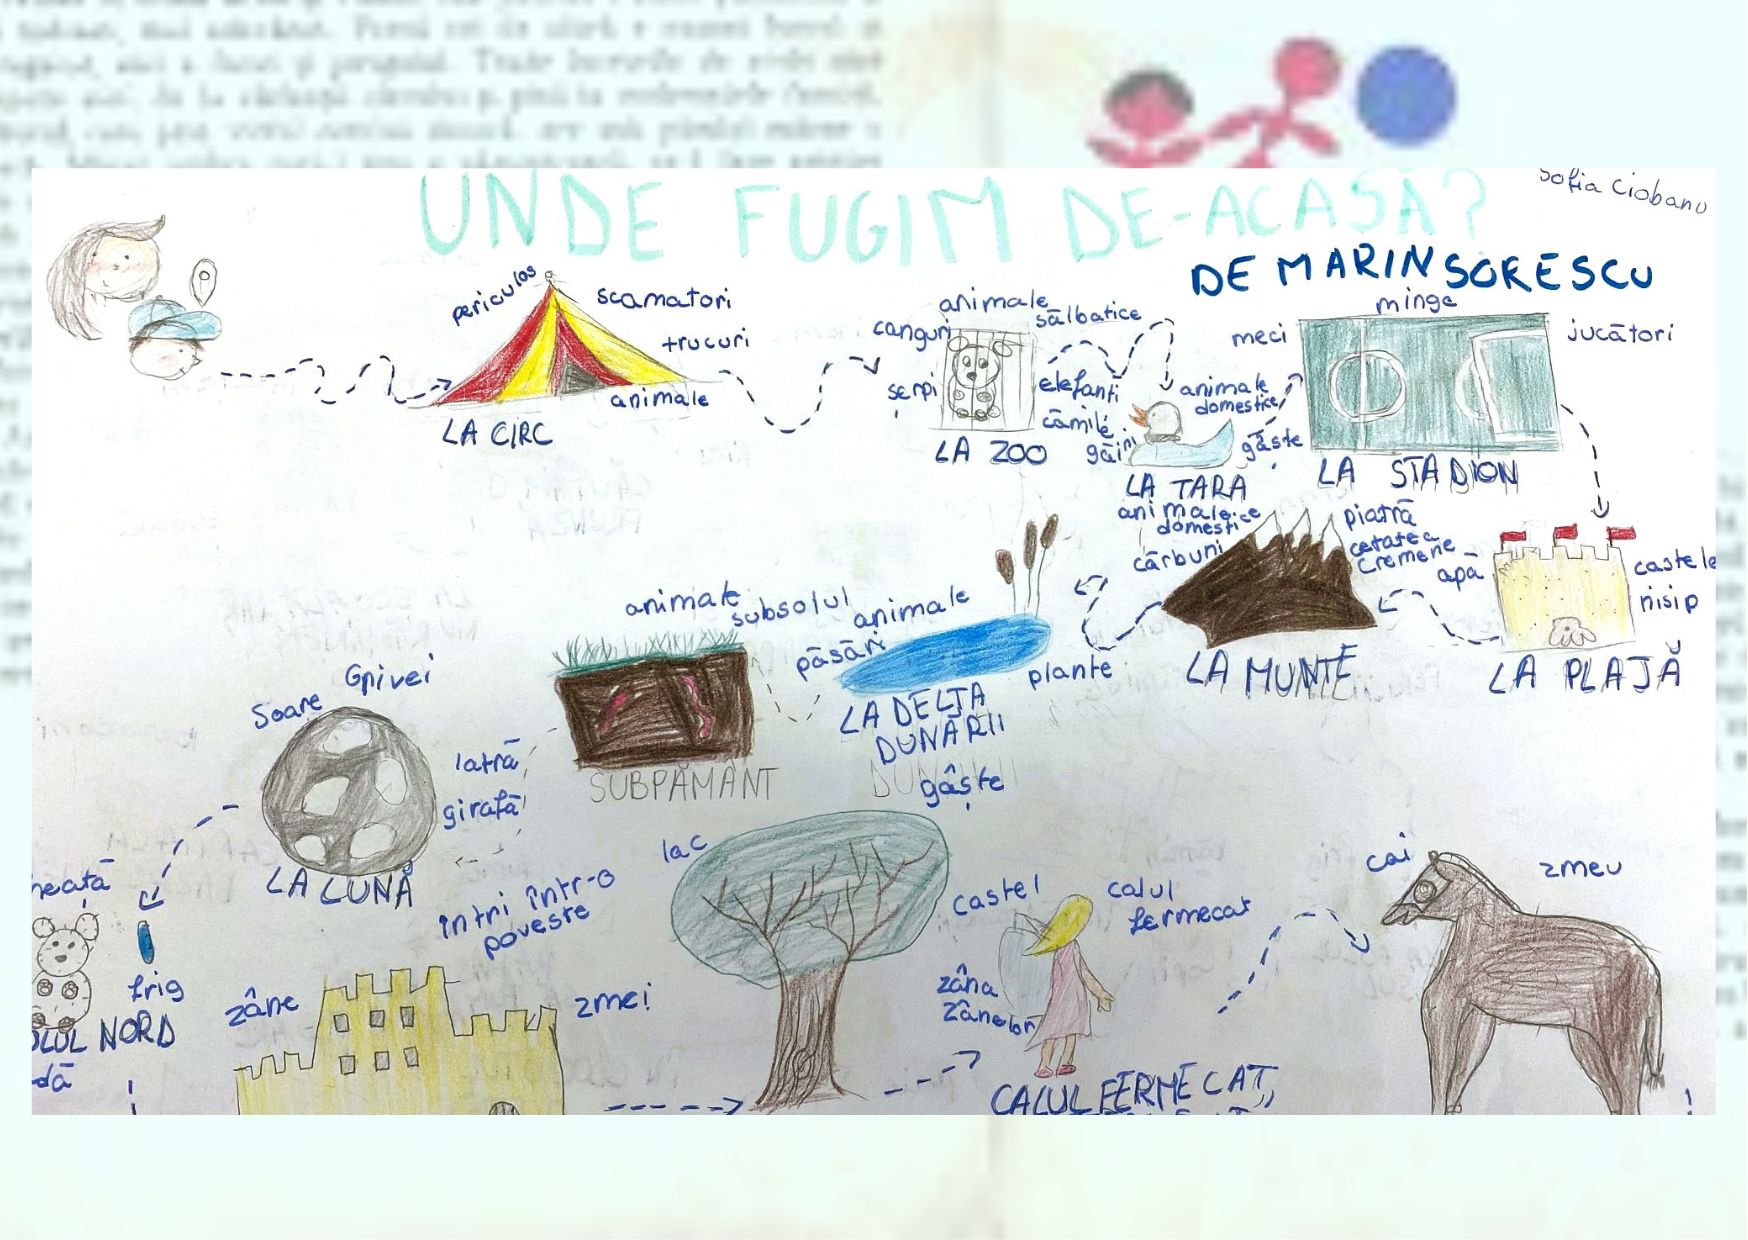 UNDE FUGIM DE-ACASĂ?
Sofia Ciobanu
DE MARIN SORESCU
periculos
scamatori
trucuri
animale
LA CIRC
animale
sălbatice
canguri
serpi
elefanți
cămile
LA ZOO
animale
domestice
găini
gâște
LA TARA
animale
domestice
minge
meci
jucători
LA STADION
castele
nisip
apă
LA PLAJĂ
piatră
cetatea
cremene
cărbuni
LA MUNTE
animale
păsări
plante
LA DELTA
DUNĂRII
gâște
animale
subsolul
SUBPĂMÂNT
Soare
Grivei
latră
girafă
LA LUNĂ
frig
NORD
intri într-o
poveste
zâne
zmei
lac
castel
calul
fermecat
zâna
zânelor
CALUL FERMECAT
cai
zmeu